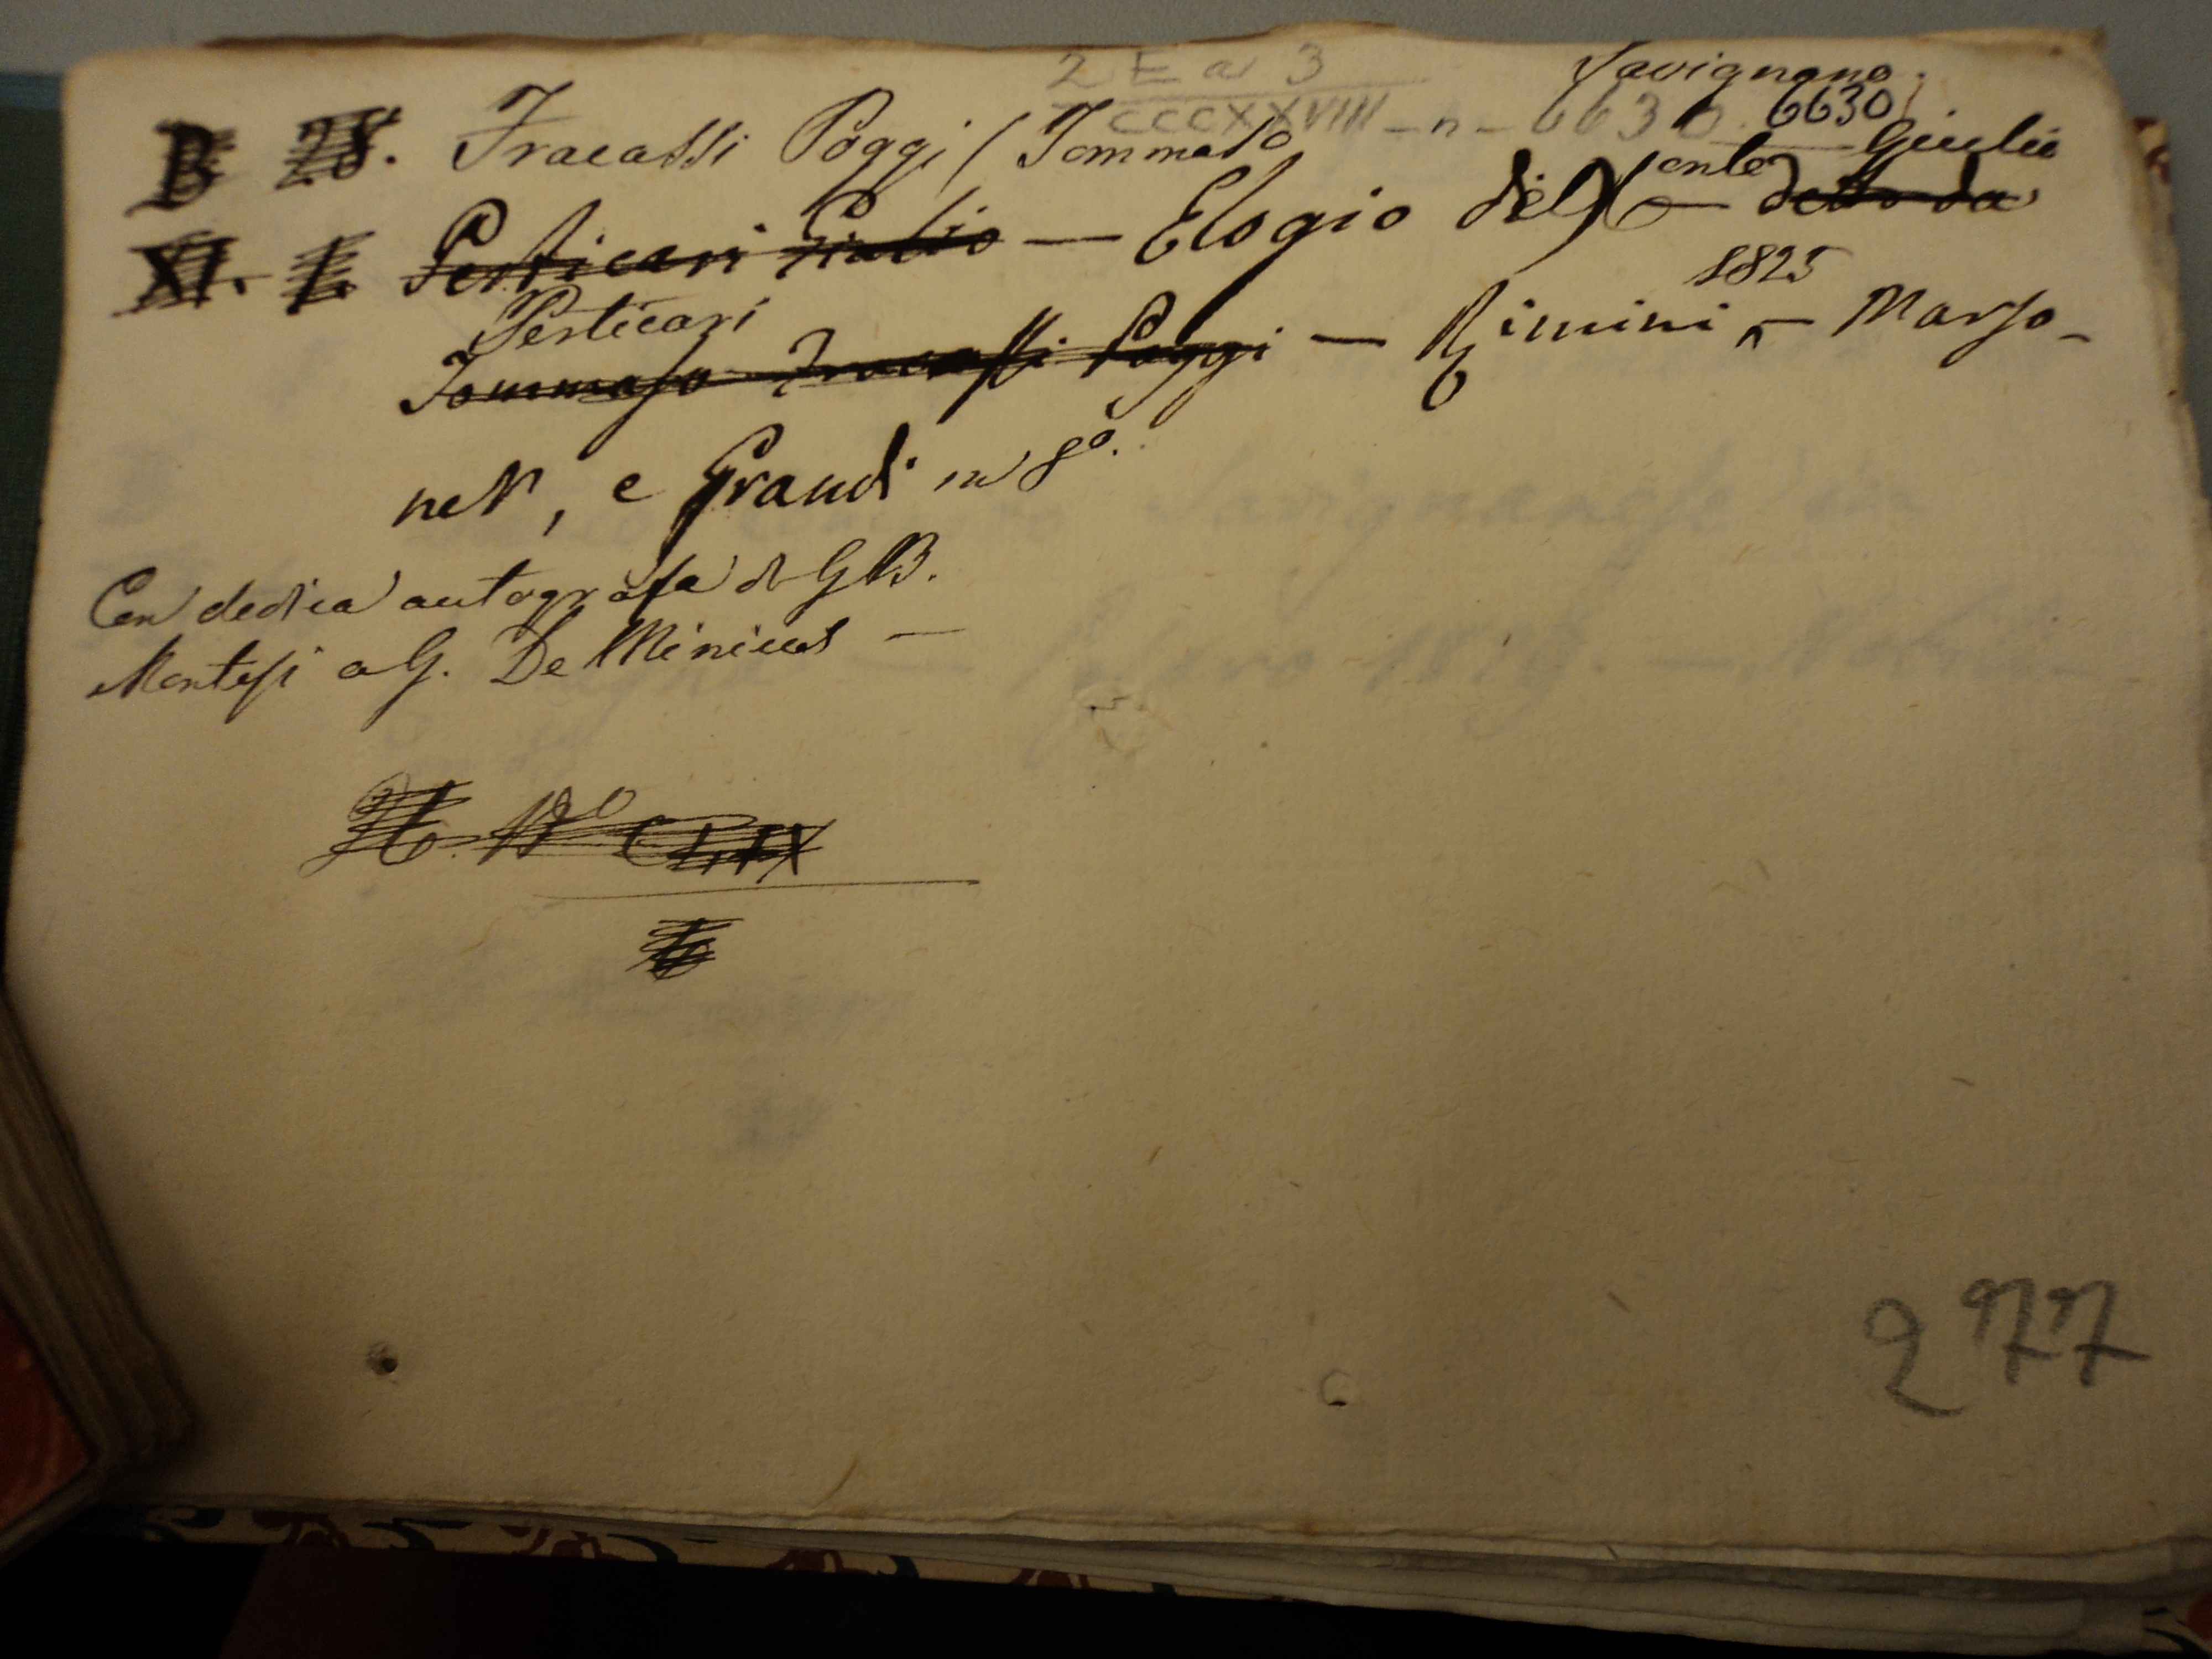 2 E a 3
Savignano.
CCCXXVIIII - n - 6630
6630
B 28. Fracassi Poggi (Tommaso
XI. 1. Perticari Giulio — Elogio del Conte detto da Giulio
Perticari
Tommaso Fracassi Poggi — Rimini, 1825 — Marso-
ner, e Grandi in 8º.
Con dedica autografa di G B.
Montesi a G. De Minicis —
CLIX
6
277